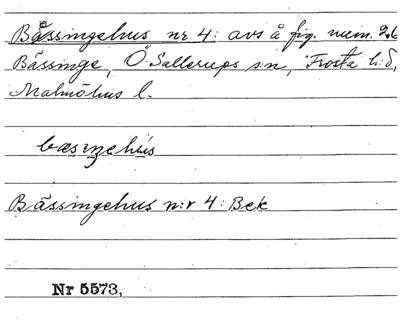 Bässingehus nr 4: avs å fig. num. 2 b
Bässinge, Ö Sallerups sn, Frosta hd,
Malmöhus l.
bæsiŋehús
Bässingehus n:r 4: Bek
Nr 5573,